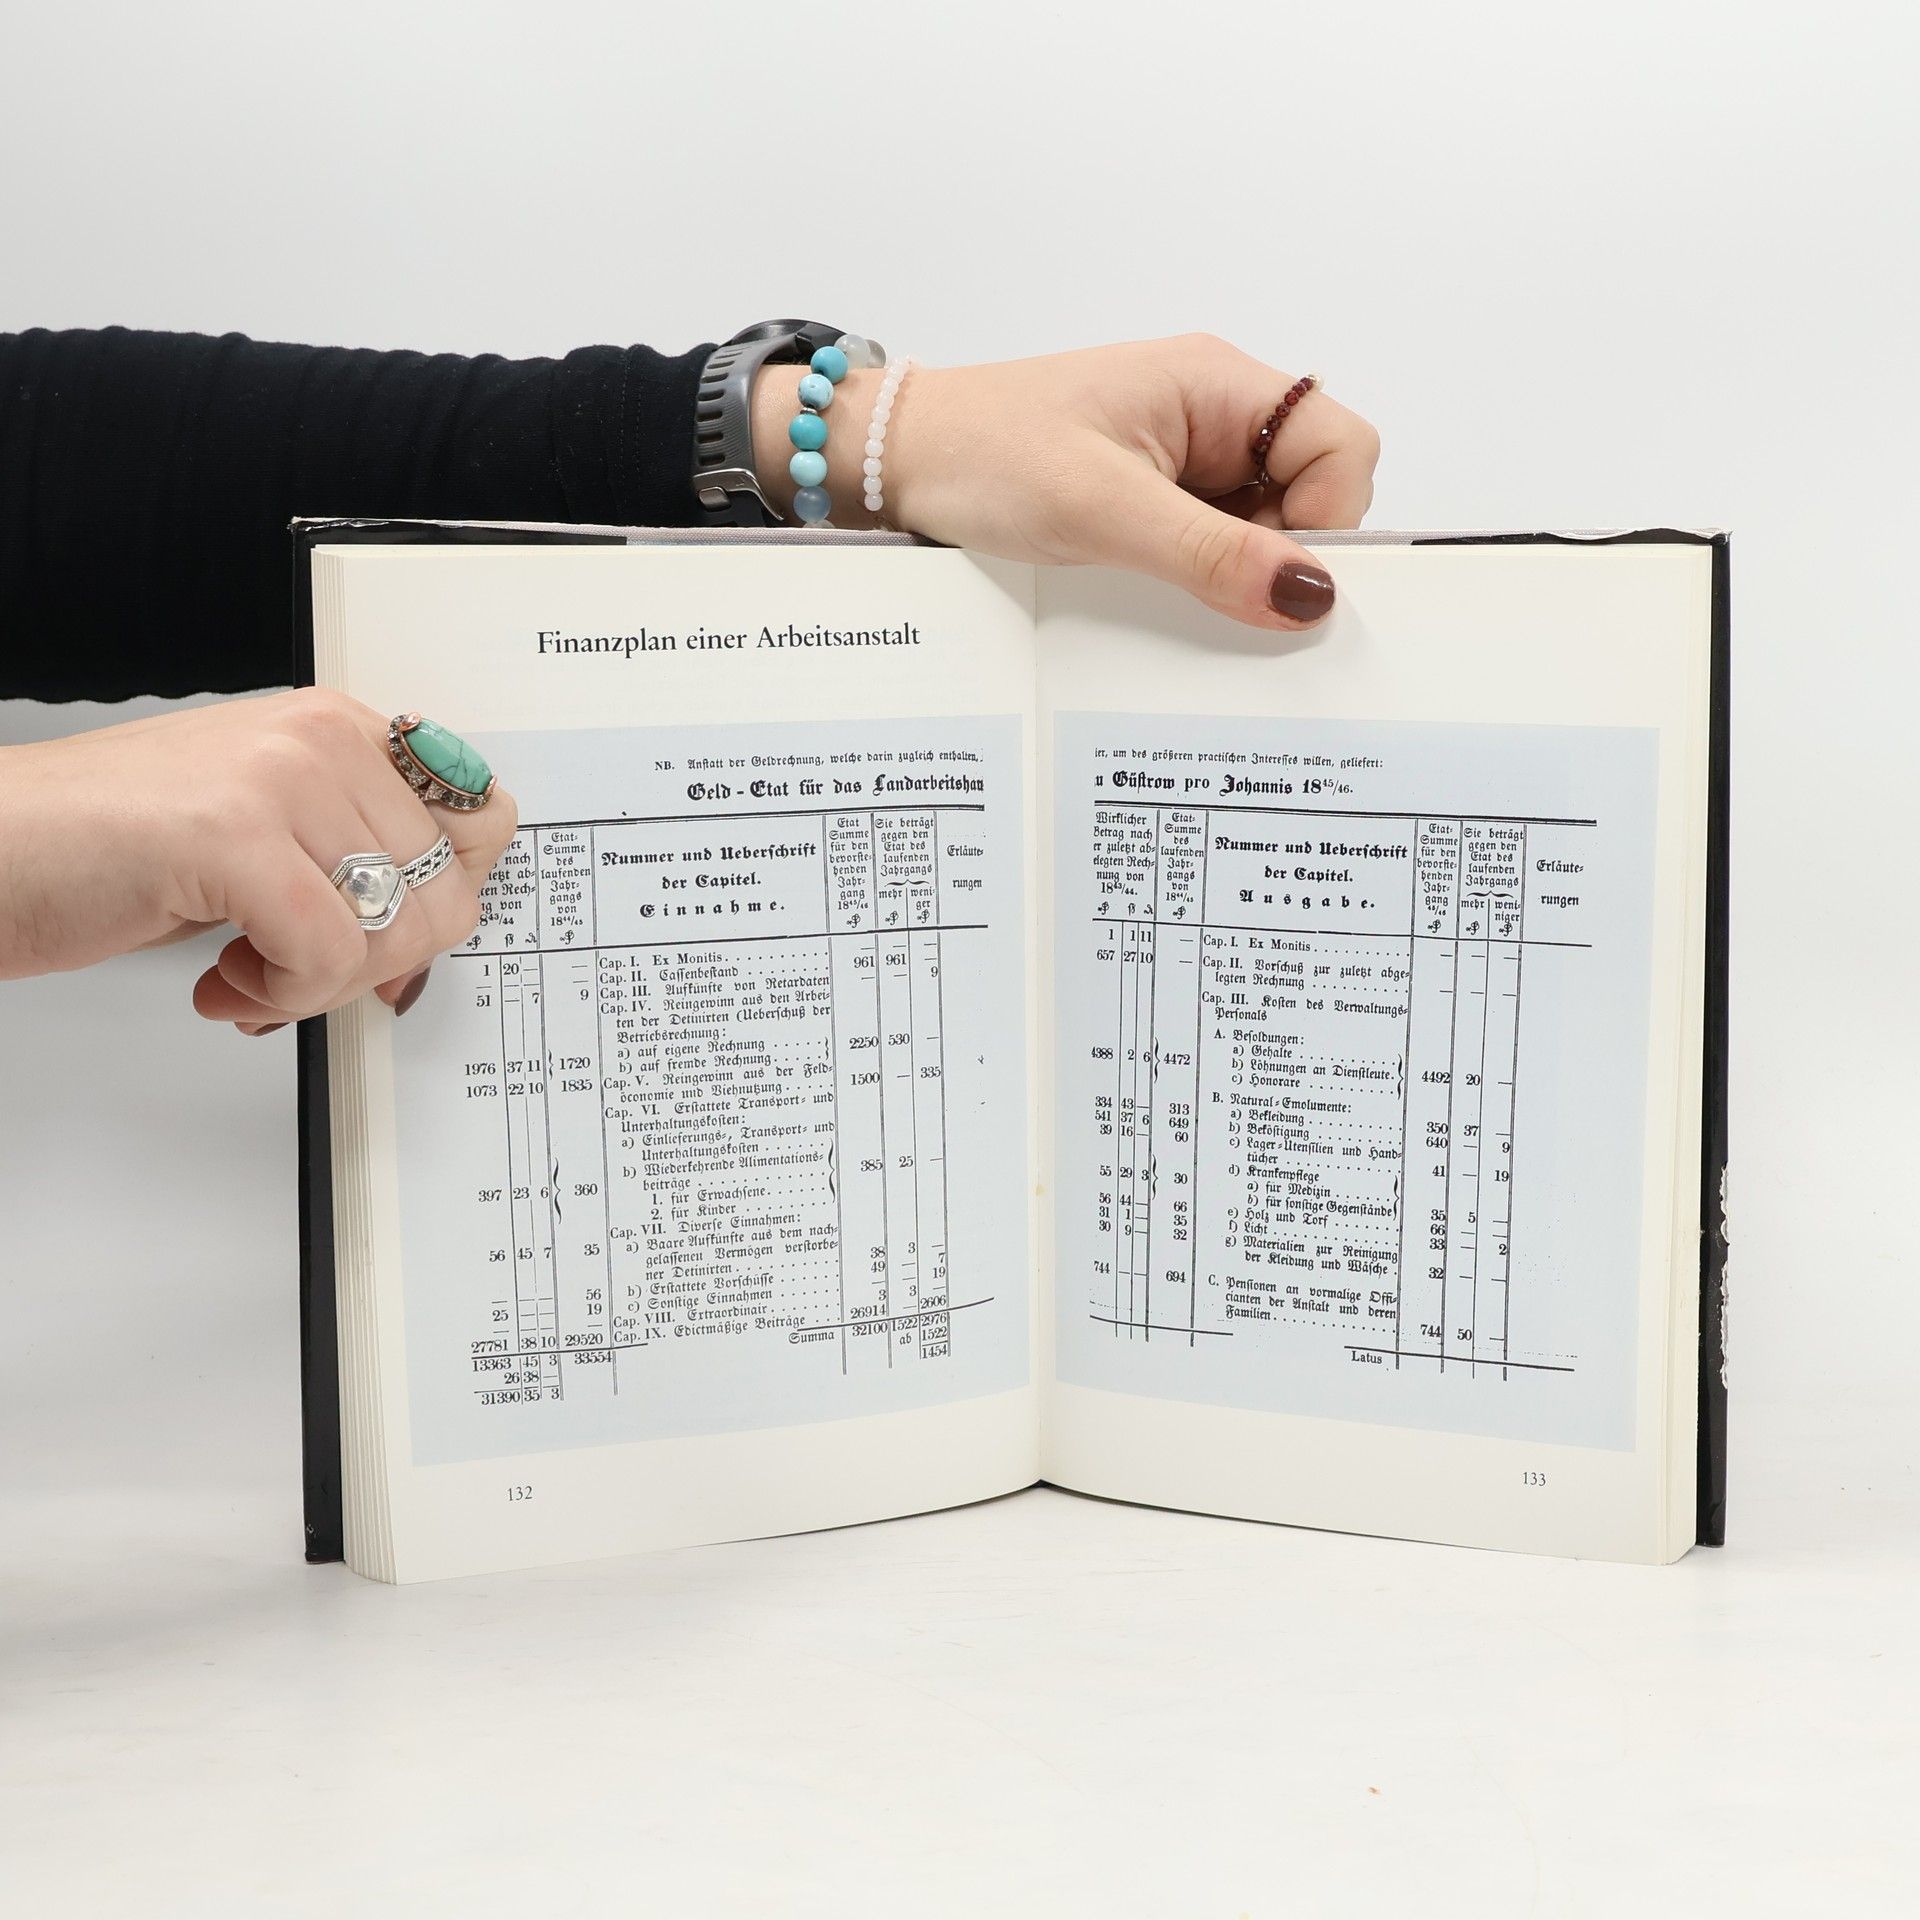 Finanzplan einer Arbeitsanstalt
NB. Anstatt der Geldrechnung, welche darin zugleich enthalten,
Geld-Etat für das Landarbeitshau
nach
1843/44
Etat-
Summe
des
laufenden
Jahr-
gangs
von
1844/45
Nummer und Ueberschrift
der Capitel.
Einnahme.
Etat
Summe
für den
bevorste-
henden
Jahr-
gang
1845/46
Sie beträgt
gegen den
Etat des
laufenden
Jahrgangs
mehr weni-
ger
Erläute-
rungen
1 20 — — Cap. I. Ex Monitis . . . . . . . . . . — — —
— — Cap. II. Cassenbestand . . . . . . . . 961 961 —
51 — 7 9 Cap. III. Aufkünfte von Retardaten — — 9
Cap. IV. Reingewinn aus den Arbei-
ten der Detinirten (Ueberschuß der
Betriebsrechnung:
a) auf eigene Rechnung . . . . .
1976 37 11 1720 b) auf fremde Rechnung . . . . . 2250 530 —
1073 22 10 1835 Cap. V. Reingewinn aus der Feld-
öconomie und Viehnutzung . . . . . 1500 — 335
Cap. VI. Erstattete Transport- und
Unterhaltungskosten:
a) Einlieferungs-, Transport- und
Unterhaltungskosten . . . . . .
b) Wiederkehrende Alimentations-
beiträge . . . . . . . . . .
397 23 6 360 1. für Erwachsene . . . . . . 385 25 —
2. für Kinder . . . . . . . .
Cap. VII. Diverse Einnahmen:
56 45 7 35 a) Baare Aufkünfte aus dem nach-
gelassenen Vermögen verstorbe-
ner Detinirten . . . . . . . . 38 3 —
— — — 56 b) Erstattete Vorschüsse . . . . . . 49 — 7
25 — — 19 c) Sonstige Einnahmen . . . . . . — — 19
— — — — Cap. VIII. Extraordinair . . . . . . 3 3 —
27781 38 10 29520 Cap. IX. Edictmäßige Beiträge . . . 26914 — 2606
13363 45 3 33554 Summa 32100 1522 2976
26 38 — ab 1522
31390 35 3 1454
132
ier, um des größeren practischen Interesses willen, geliefert:
u Güstrow pro Johannis 1845/46.
Wirklicher
Betrag nach
er zuletzt ab-
elegten Rech-
nung von
1843/44.
Etat-
Summe
des
laufenden
Jahr-
gangs
von
1844/45
Nummer und Ueberschrift
der Capitel.
Ausgabe.
Etat-
Summe
für den
bevorste-
henden
Jahr-
gang
45/46
Sie beträgt
gegen den
Etat des
laufenden
Jahrgangs
mehr weni-
niger
Erläute-
rungen
1 1 11 — Cap. I. Ex Monitis . . . . . . . . . — — —
657 27 10 — Cap. II. Vorschuß zur zuletzt abge-
legten Rechnung . . . . . . . . . — — —
Cap. III. Kosten des Verwaltungs-
Personals
A. Besoldungen:
a) Gehalte . . . . . . . . . .
4388 2 6 4472 b) Löhnungen an Dienstleute. 4492 20 —
c) Honorare . . . . . . . . .
B. Natural-Emolumente:
334 43 — 313 a) Bekleidung . . . . . . . . . 350 37 —
541 37 6 649 b) Beköstigung . . . . . . . . 640 — 9
39 16 — 60 c) Lager-Utensilien und Hand-
tücher . . . . . . . . . . . 41 — 19
d) Krankenpflege
55 29 3 30 a) für Medizin . . . . . . .
b) für sonstige Gegenstände 35 5 —
56 44 — 66 e) Holz und Torf . . . . . . . 66 — —
31 1 — 35 f) Licht . . . . . . . . . . . . 33 — 2
30 9 — 32 g) Materialien zur Reinigung
der Kleidung und Wäsche . 32 — —
744 — — 694 C. Pensionen an vormalige Offi-
cianten der Anstalt und deren
Familien . . . . . . . . . . . . 744 50 —
Latus
133